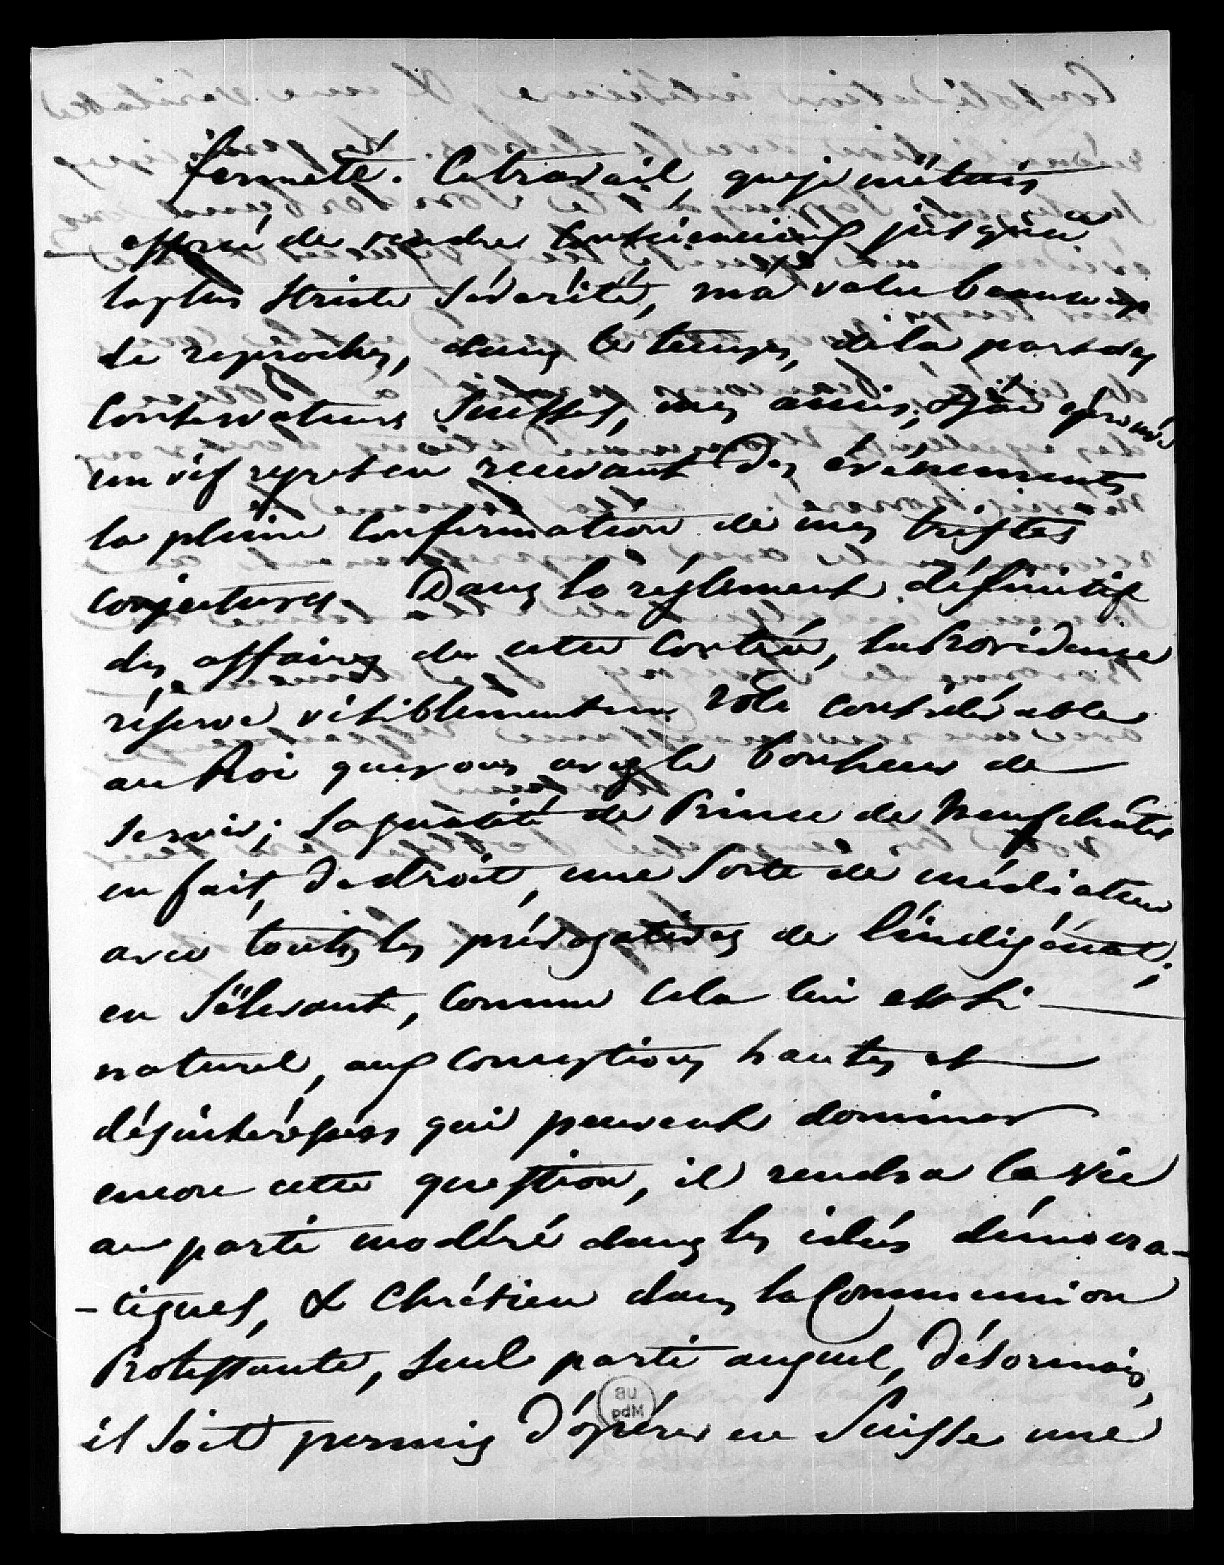 fermeté. Ce travail, que je m'étais
efforcé de rendre consciencieux jusqu'à
la plus stricte sévérité, m'a valu beaucoup
de reproches, dans le temps, de la part des
Conservateurs Suisses, mes amis; & j'ai éprouvé
un vif regret en recevant des événements
la pleine confirmation de mes tristes
conjectures. Dans le réglement définitif
des affaires de cette contrée, la Providence
réserve visiblement un rôle considérable
au Roi que vous avez le bonheur de
servir; sa qualité de Prince de Neufchâtel
en fait, de droit, une sorte de médiateur
avec toutes les prérogatives de l'indigénat;
en s'élevant, comme cela lui est si
naturel, aux conceptions hautes et
désintéressées qui peuvent dominer
encore cette question, il rendra la vie
au parti modéré dans les idées démocra-
-tiques, & Chrétien dans la Communion
Protestante, seul parti auquel, désormais,
il soit permis d'opérer en Suisse une